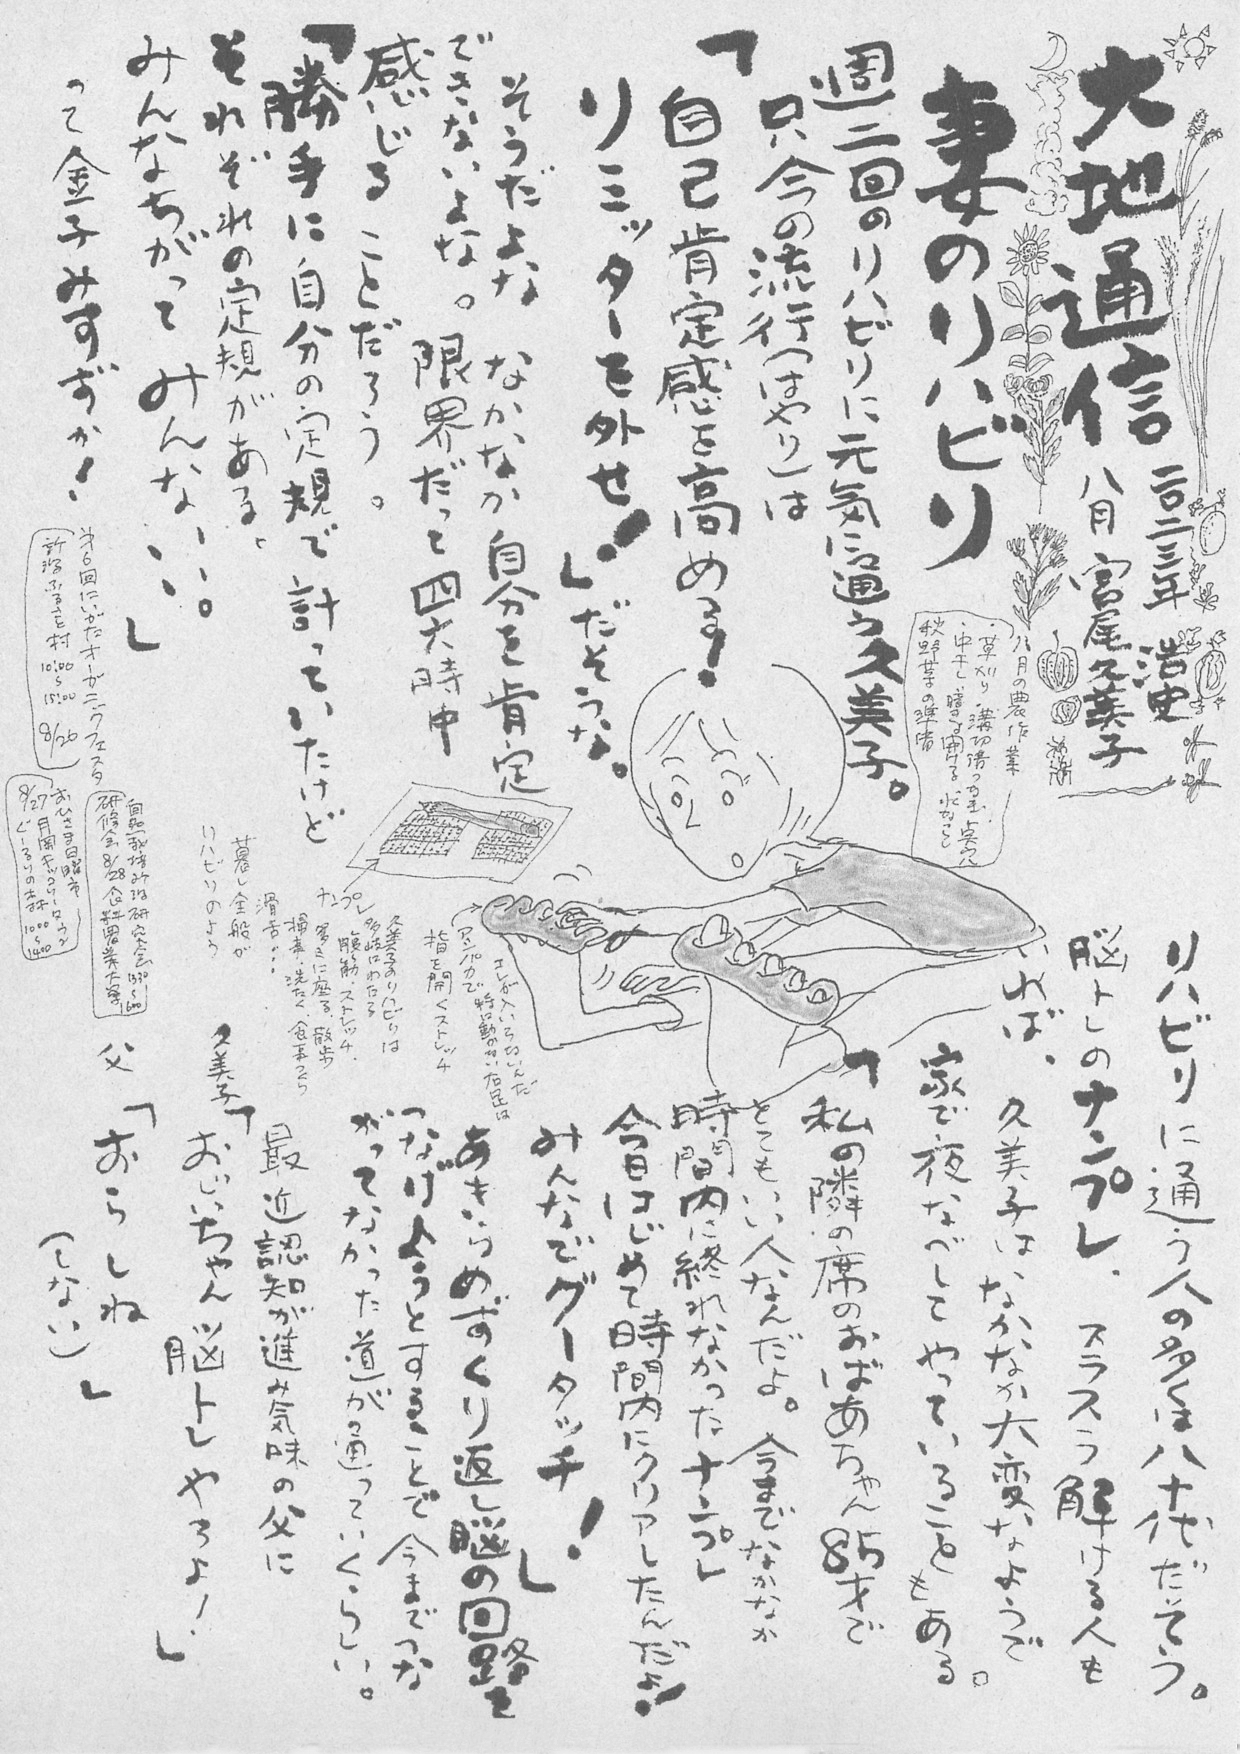 大地通信
二〇二三年
八月
浩史
宮尾久美子
妻のリハビリ
週二回のリハビリに元気に通う久美子。
只今の流行(はやり)は
「自己肯定感を高める!
リミッターを外せ!」だそうな。
そうだよな なかなか自分を肯定
できないよな。限界だって四六時中
感じることだろう。
「勝手に自分の定規で計っていたけど
それぞれの定規がある。
みんなちがってみんないい。」
って金子みすずか!
八月の農作業
・草刈り
秋野菜の準備
リハビリに通う人の多くは八十代だそう。
脳トレのナンプレ、スラスラ解ける人も
いれば、久美子はなかなか大変なようで
家で夜なべしてやっていることもある。
「私の隣の席のおばあちゃん85才で
とてもいい人なんだよ。今までなかなか
時間内に終れなかったナンプレ
今日はじめて時間内にクリアしたんだよ!
みんなでグータッチ!」
あきらめずくり返し脳の回路を
つなげようとすることで今までつな
がってなかった道が通っていくらしい。
最近認知が進み気味の父に
久美子「おじいちゃん脳トレやろよ!」
父「おらしね
(しない)」
コレが入いらないんだ
特に動かない右足は
アシパカで
指を開くストレッチ
ナンプレ
久美子のリハビリは
多岐にわたる
腹筋・ストレッチ、
掃除・洗たく・食事つくり
滑舌…
暮し全般が
リハビリのよう
第6回にいがたオーガニックフェスタ
新潟ふるさと村
10:00〜15:00 8/26
自然栽培新潟研究会
研修会 8/28 食料農業大学
おひさま日曜市
8/27
ぐーるりの森